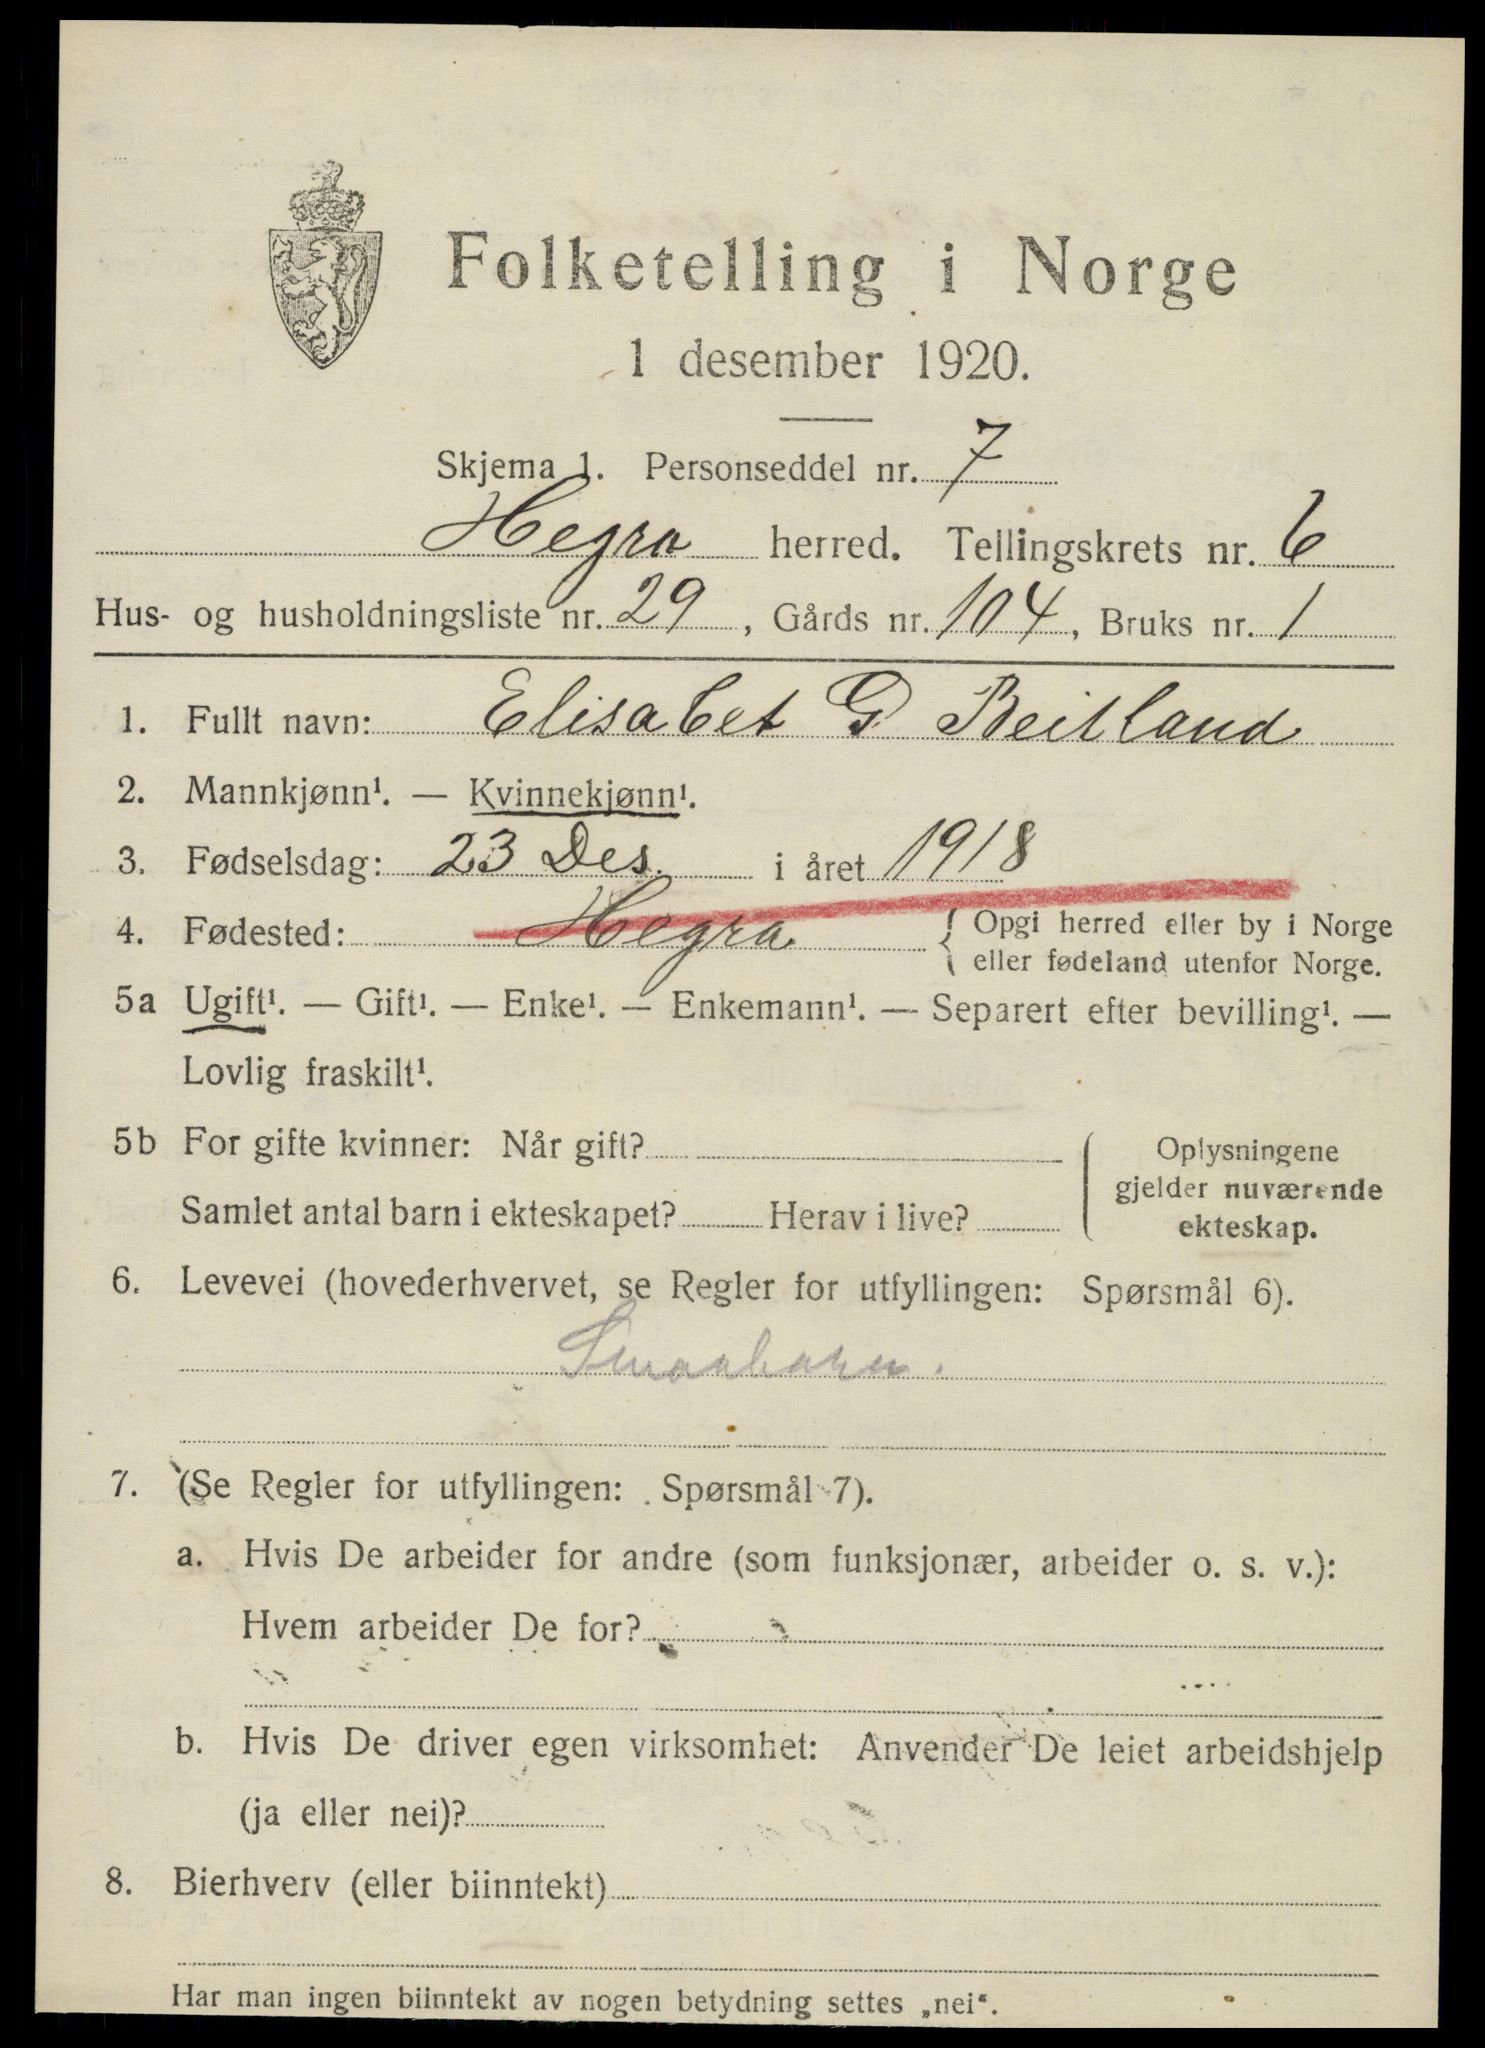 Folketelling i Norge
1 desember 1920.
Skjema 1. Personseddel nr. 7
Hegra herred. Tellingskrets nr. 6
Hus- og husholdningsliste nr. 29, Gårds nr. 104, Bruks nr. 1
1. Fullt navn: Elisabet G Reitland
2. Mannkjønn¹. — Kvinnekjønn¹.
3. Fødselsdag: 23 Des. i året 1918
4. Fødested: Hegra { Opgi herred eller by i Norge
eller fødeland utenfor Norge.
5a Ugift¹. — Gift¹. — Enke¹. — Enkemann¹. — Separert efter bevilling¹. —
Lovlig fraskilt¹.
5b For gifte kvinner: Når gift?
Samlet antal barn i ekteskapet? Herav i live?
Oplysningene
gjelder nuværende
ekteskap.
6. Levevei (hovederhvervet, se Regler for utfyllingen: Spørsmål 6).
Smaabarn.
7. (Se Regler for utfyllingen: Spørsmål 7).
a. Hvis De arbeider for andre (som funksjonær, arbeider o. s. v.):
Hvem arbeider De for?
b. Hvis De driver egen virksomhet: Anvender De leiet arbeidshjelp
(ja eller nei)?
8. Bierhverv (eller biinntekt)
Har man ingen biinntekt av nogen betydning settes „nei“.